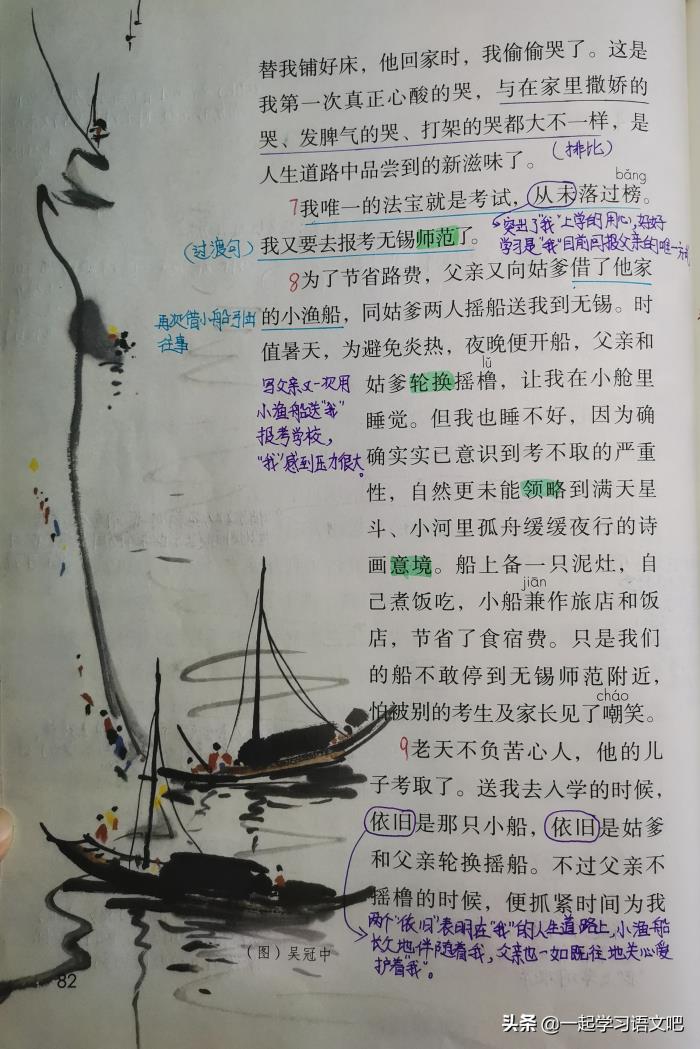 替我铺好床，他回家时，我偷偷哭了。这是
我第一次真正心酸的哭，与在家里撒娇的
哭、发脾气的哭、打架的哭都大不一样，是
人生道路中品尝到的新滋味了。
(排比)
bǎng
7我唯一的法宝就是考试，从未落过榜。
突出了"我"上学的用心，好好
学习是"我"目前回报父亲的唯一方式
(过渡句)
我又要去报考无锡师范了。
8为了节省路费，父亲又向姑爹借了他家
再次借小船引出
往事
的小渔船，同姑爹两人摇船送我到无锡。时
值暑天，为避免炎热，夜晚便开船，父亲和
lǔ
写父亲又一次用
小渔船送"我"
报考学校，
"我"感到压力很大。
姑爹轮换摇橹，让我在小舱里
睡觉。但我也睡不好，因为确
确实实已意识到考不取的严重
性，自然更未能领略到满天星
斗、小河里孤舟缓缓夜行的诗
画意境。船上备一只泥灶，自
jiān
己煮饭吃，小船兼作旅店和饭
店，节省了食宿费。只是我们
的船不敢停到无锡师范附近，
cháo
怕被别的考生及家长见了嘲笑。
9老天不负苦心人，他的儿
子考取了。送我去入学的时候，
依旧是那只小船，依旧是姑爹
和父亲轮换摇船。不过父亲不
摇橹的时候，便抓紧时间为我
两个"依旧"表明在"我"的人生道路上，小渔船
长久地伴随着我，父亲也一如既往地关心爱
护着"我"。
(图)吴冠中
82
头条 @一起学习语文吧